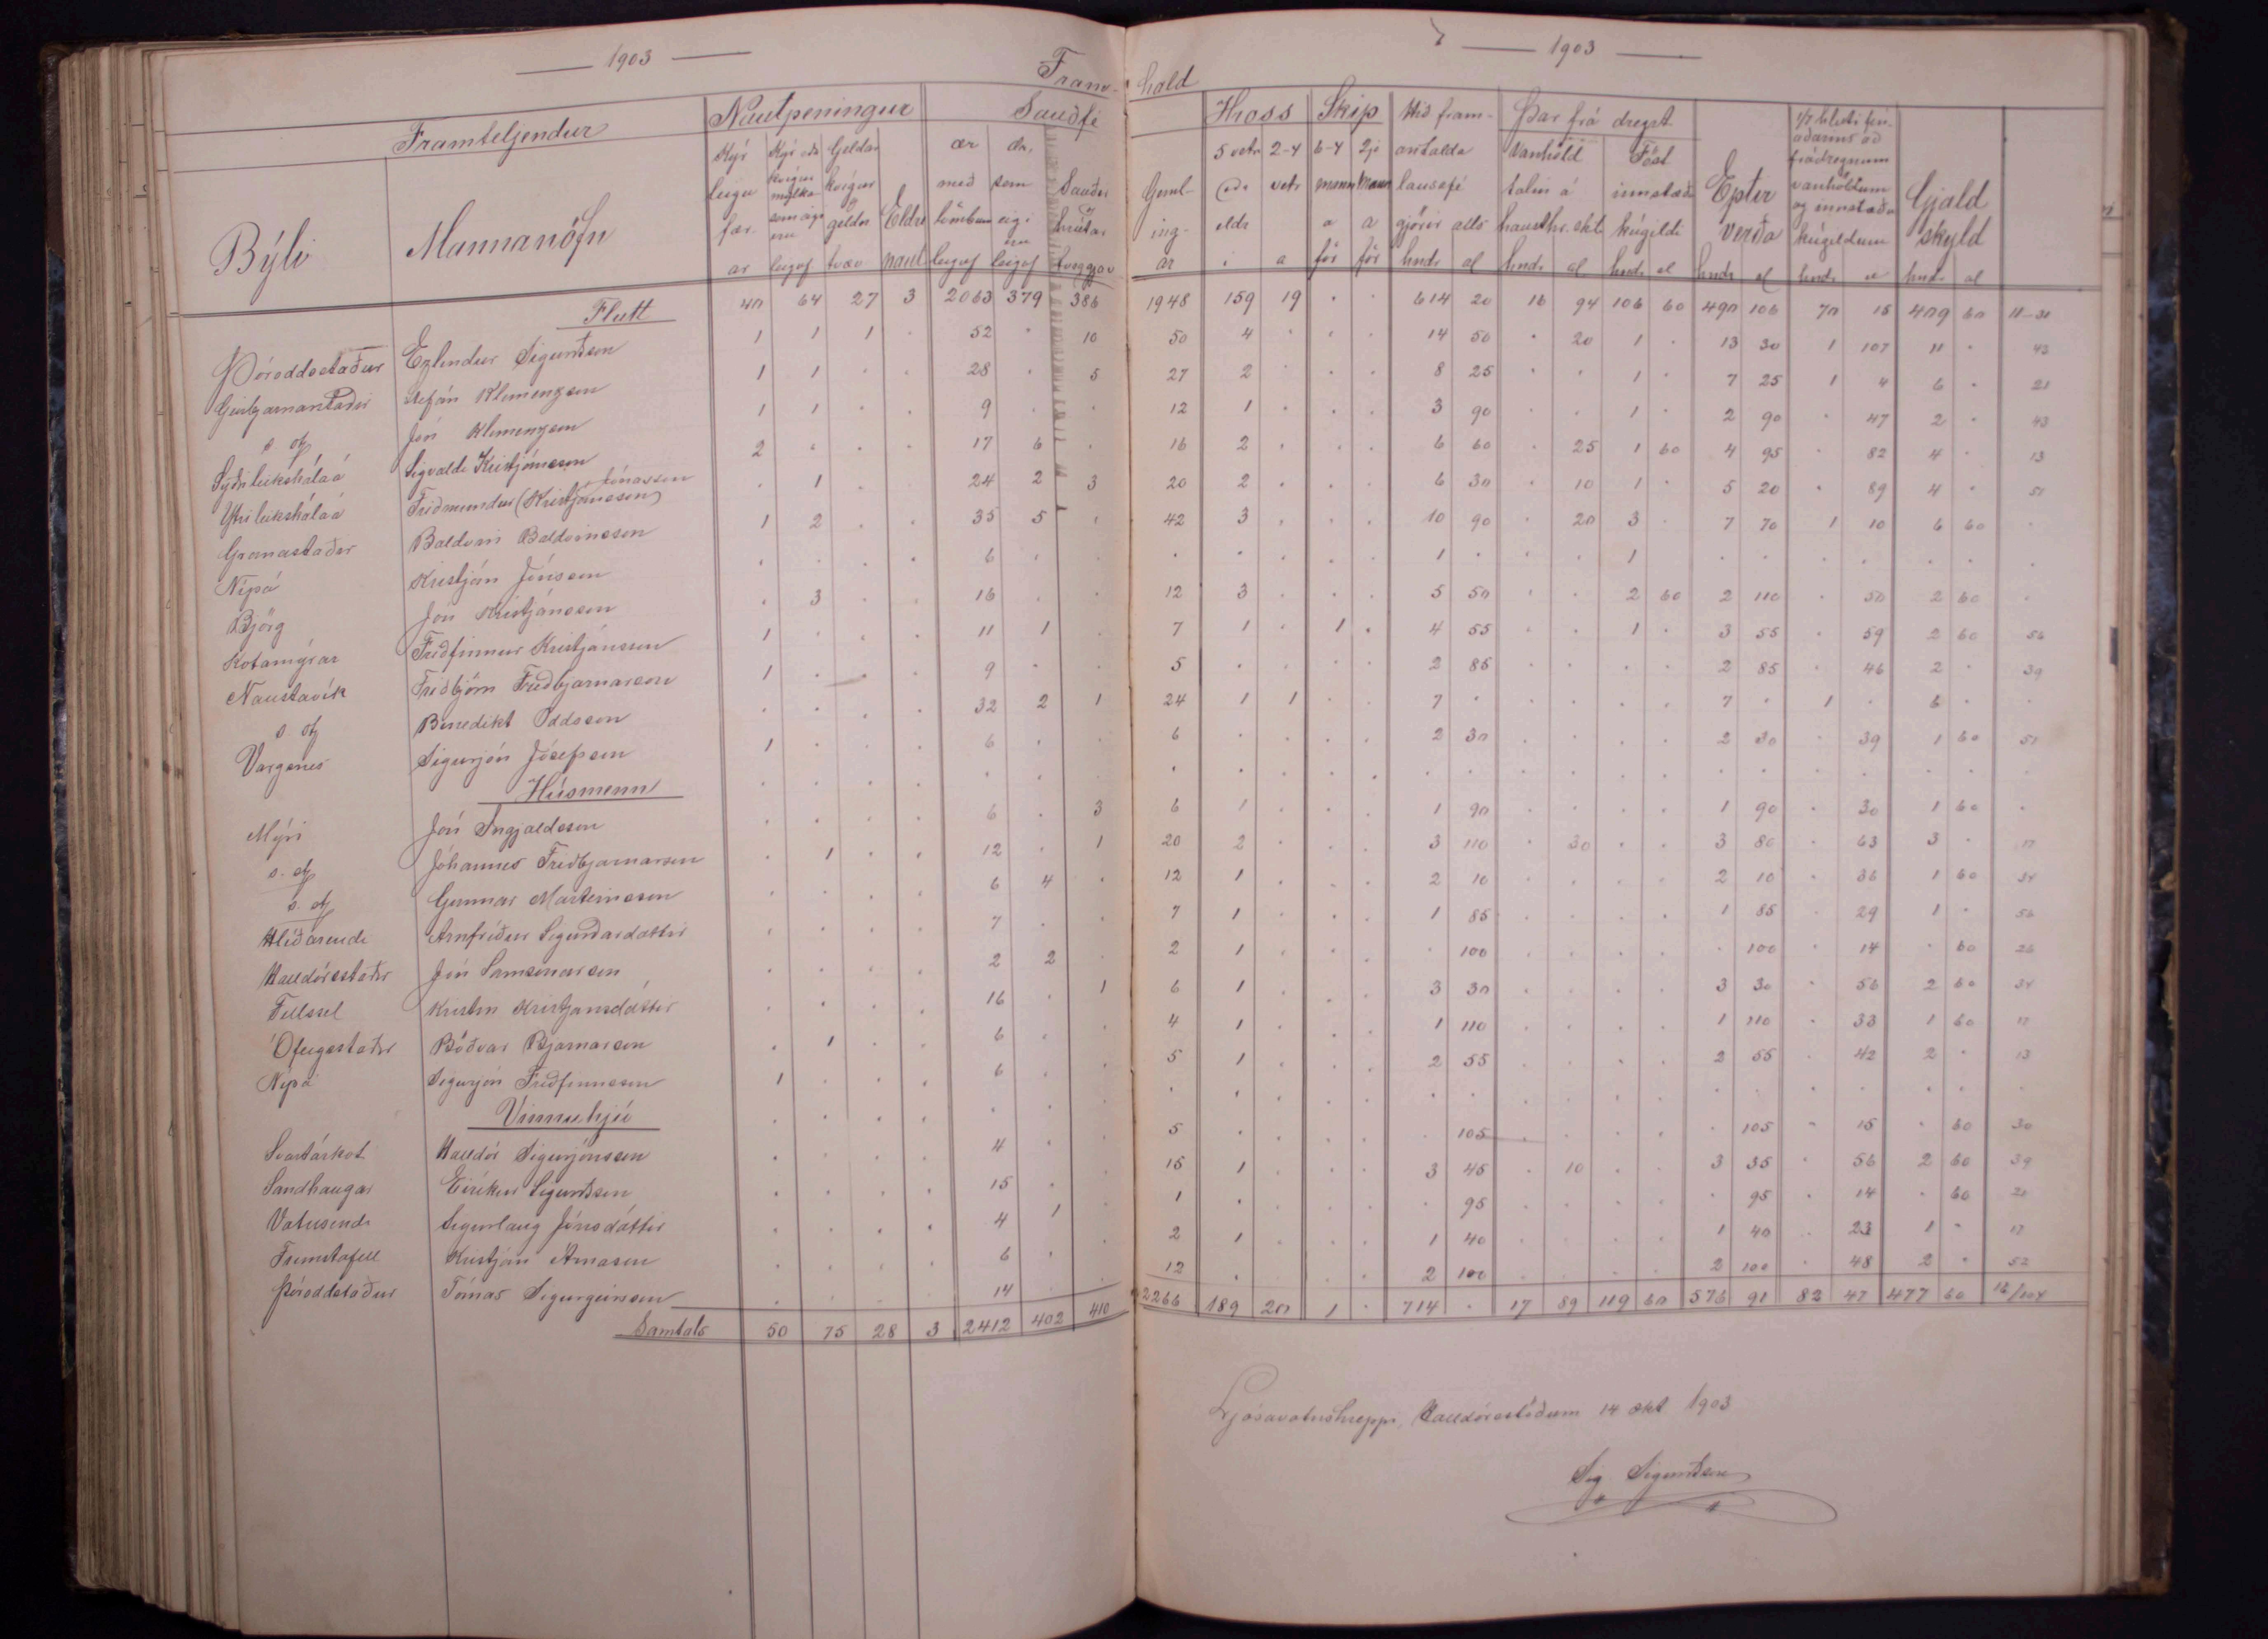 1903
1903
Fram-
hald
Framteljendur
Nautpeningur
Sauðfé
Hross
Skip
Hið fram-
Þar frá dregst
Býli
Mannanöfn
Vanhöld
Föst
Eptir
verða
Gjald
skyld
Flutt 40 64 27 3 2063 379 386 1948 159 19 . . 614 20 16 94 106 60 490 106 70 15 409 60
Þóroddsstaður Erlendur Sigurðsson 1 1 1 . 52 . 10 50 4 . . . 14 50 . 20 1 . 13 30 1 107 11 . 43
Geirbjarnarstaðir Stefán Klemenzson 1 1 . . 28 . 5 27 2 . . . 8 25 . . 1 . 7 25 1 4 6 . 21
s st Jón Klemenzson 1 1 . . 9 . . 12 1 . . . 3 90 . . 1 . 2 90 . 47 2 . 43
Syðrileikskálaá Sigvaldi Kristjánsson 2 . . . 17 6 . 16 2 . . . 6 60 . 25 1 60 4 95 . 82 4 . 13
Jónasson
Ytrileikskálaá Friðmundur (Kristjánsson) . 1 . . 24 2 3 20 2 . . . 6 30 . 10 1 . 5 20 . 89 4 . 51
Granastaðir Baldvin Baldvinsson 1 2 . . 35 5 . 42 3 . . . 10 90 . 20 3 . 7 70 1 10 6 60 .
Nípá Kristján Jónsson . . . . 6 . . . . . . . 1 . . . 1 . . . . . . .
Björg Jón Kristjánsson . 3 . . 16 . . 12 3 . . . 5 50 . . 2 60 2 110 . 50 2 60 .
Kotamýrar Friðfinnur Kristjánsson 1 . . . 11 1 . 7 1 . 1 . 4 55 . . 1 . 3 55 . 59 2 60 56
Naustavík Friðbjörn Friðbjarnarson 1 . . . 9 . . 5 . . . . 2 85 . . . . 2 85 . 46 2 . 39
s st Benedikt Oddsson . . . . 32 2 1 24 1 1 . . 7 . . . . . 7 . 1 . 6 . .
Vargsnes Sigurjón Jósefsson 1 . . . 6 . . 6 . . . . 2 30 . . . . 2 30 . 39 1 60 51
Húsmenn
Mýri Jón Ingjaldsson . . . . 6 . 3 6 1 . . . 1 90 . . . . 1 90 . 30 1 60 .
s. st Jóhannes Friðbjarnarson . 1 . . 12 . 1 20 2 . . . 3 110 . 30 . . 3 80 . 63 3 . 17
s. st Gunnar Marteinsson . . . . 6 4 . 12 1 . . . 2 10 . . . . 2 10 . 36 1 60 34
Hlíðarendi Arnfríður Sigurðardóttir . . . . 7 . . 7 1 . . . 1 85 . . . . 1 85 . 29 1 . 56
Halldórsstaðir Jón Samsonarson . . . . 2 2 . 2 1 . . . . 100 . . . . . 100 . 14 . 60 26
Fellssel Kristín Kristjansdóttir . . . . 16 . 1 6 1 . . . 3 30 . . . . 3 30 . 56 2 60 34
Ófeigsstaðir Böðvar Bjarnarson . 1 . . 6 . . 4 1 . . . 1 110 . . . . 1 110 . 33 1 60 17
Nípá Sigurjón Friðfinnsson 1 . . . 6 . . 5 1 . . . 2 55 . . . . 2 55 . 42 2 . 13
Vinnuhjú
Svartárkot Halldór Sigurjónsson . . . . 4 . . 5 . . . . . 105 . . . . . 105 . 15 . 60 30
Sandhaugar Eiríkur Sigurðsson . . . . 15 . . 15 1 . . . 3 45 . 10 . . 3 35 . 56 2 60 39
Vatnsendi Sigurlaug Jónsdóttir . . . . 4 1 . 1 . . . . . 95 . . . . . 95 . 14 . 60 21
Fremstafell Kristján Árnason . . . . 6 . . 2 1 . . . 1 40 . . . . 1 40 . 23 1 . 17
Þóroddstaður Tómas Sigurgeirsson . . . . 14 . . 12 . . . . 2 100 . . . . 2 100 . 48 2 . 52
Samtals 50 75 28 3 2412 402 410 2266 189 20 1 . 714 . 17 89 119 60 576 91 82 47 477 60
Ljósavatnshreppi, Halldórsstöðum 14 okt 1903
Sig Sigurðsson